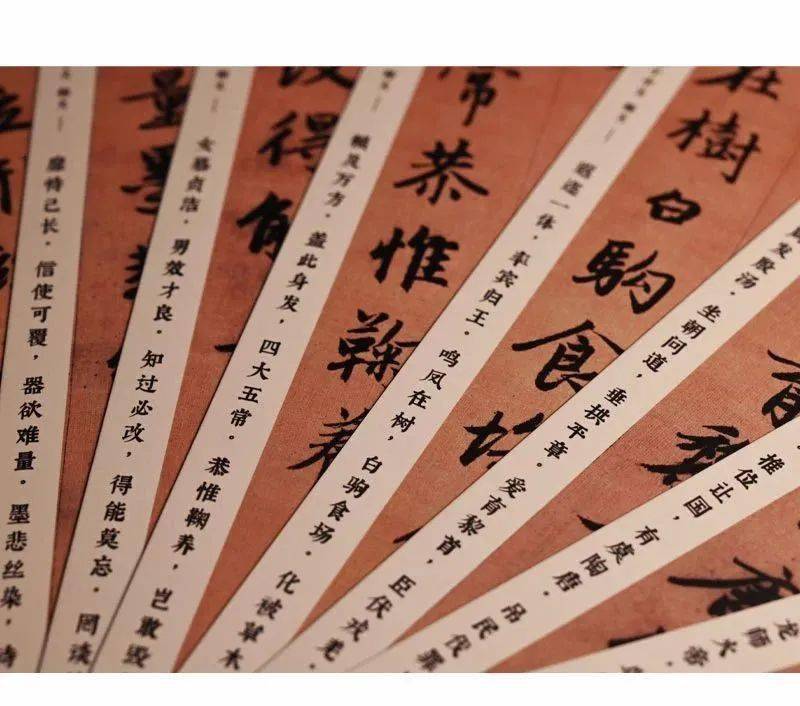 龙师火帝。
推位让国，有虞陶唐。吊民伐罪
育黎
发殷汤。坐朝问道，垂拱平章。爱育黎首，臣伏戎羌。
在樹白駒食場
遐迩一体，率宾归王。鸣凤在树，白驹食场。化被草木
常恭惟鞠養
赖及万方。盖此身发，四大五常。恭惟鞠养，岂敢毁
得能
女慕贞洁，男效才良。知过必改，得能莫忘。罔谈
量墨
靡恃己长。信使可覆，器欲难量。墨悲丝染，